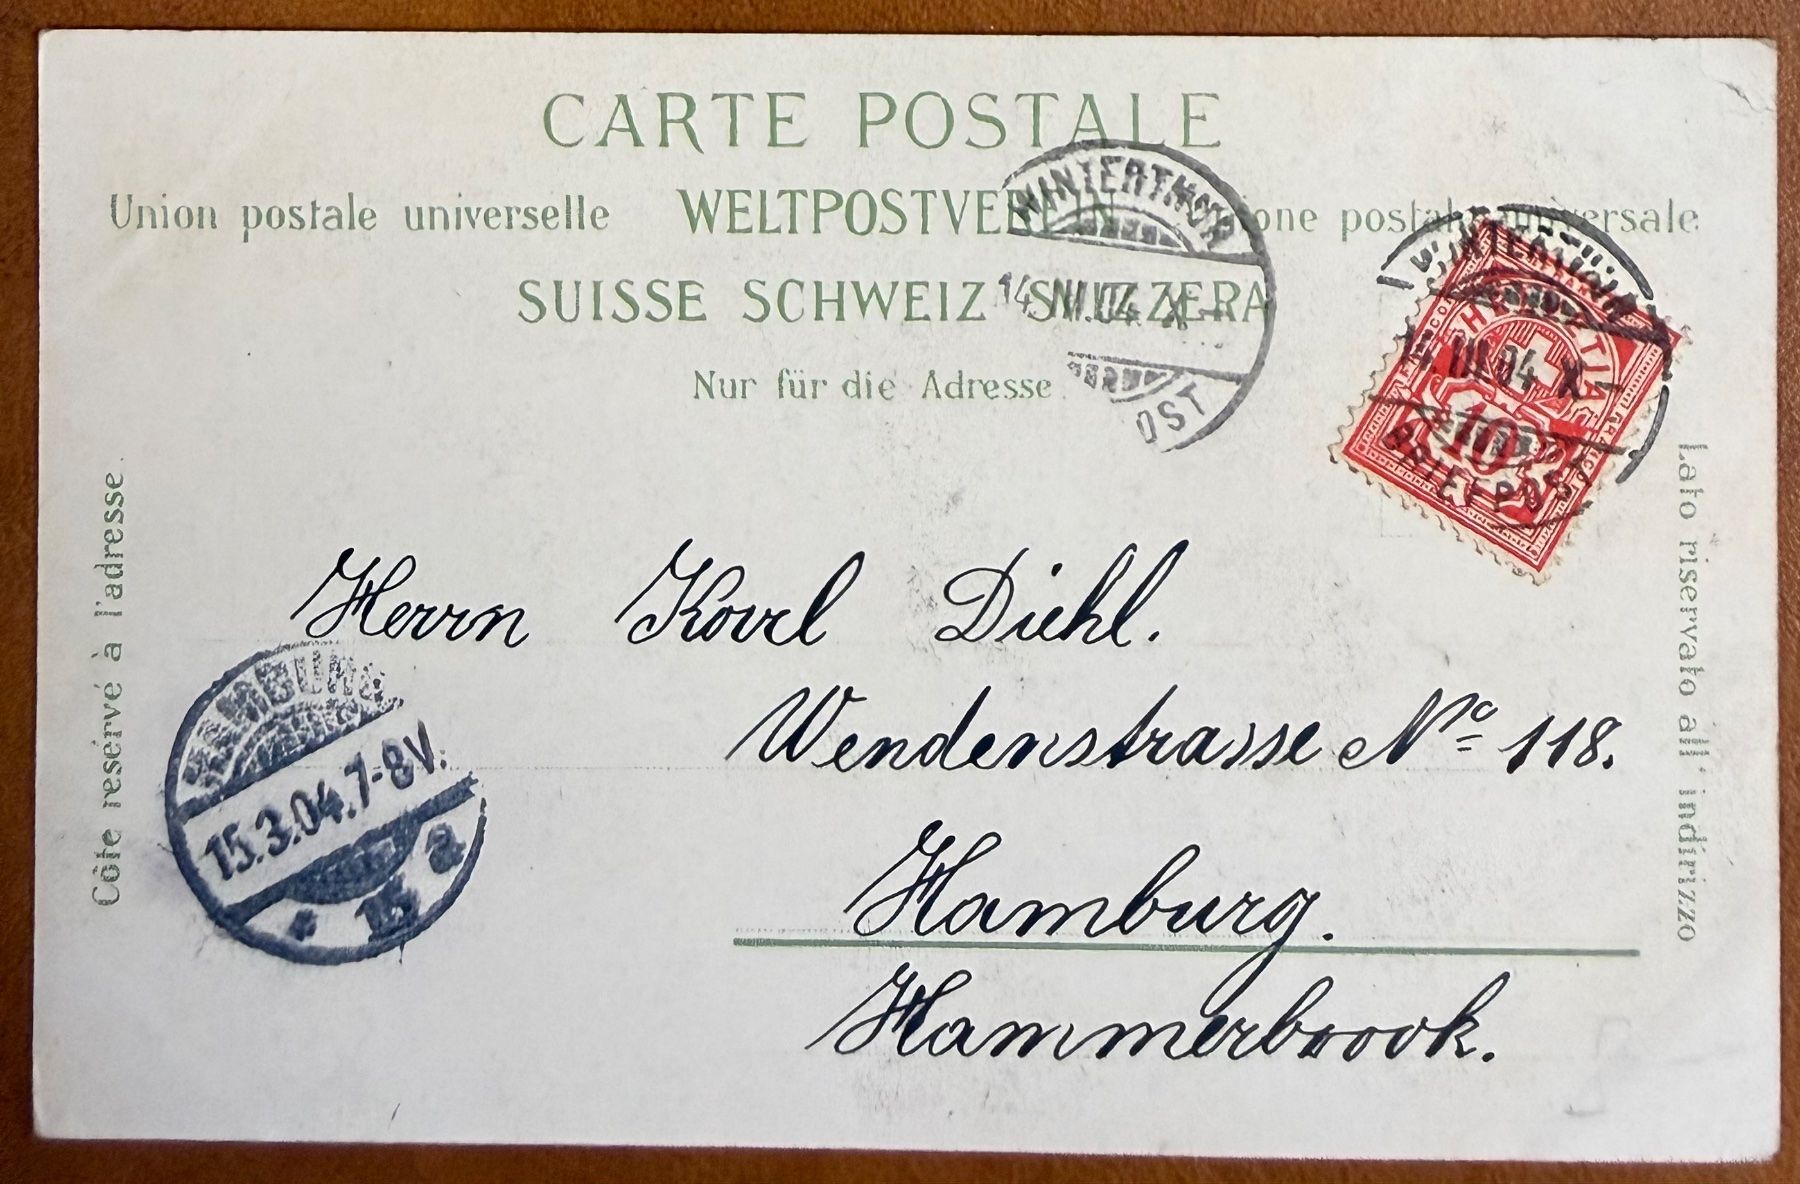 CARTE POSTALE
Union postale universelle WELTPOSTVEREIN Unione postale universale
SUISSE SCHWEIZ SVIZZERA
Nur für die Adresse.
Côté réservé à l'adresse.
Lato riservato all' indirizzo
WINTERTHUR
14.III.04 X–
WINTERTHUR
14.III.04 X–
BRIEFPOST
HELVETIA
10
Herrn Karl Diehl.
Wendenstrasse No 118.
Hamburg.
Hammerbrook.
HAMBURG
15.3.04.7-8V.
* 15 a